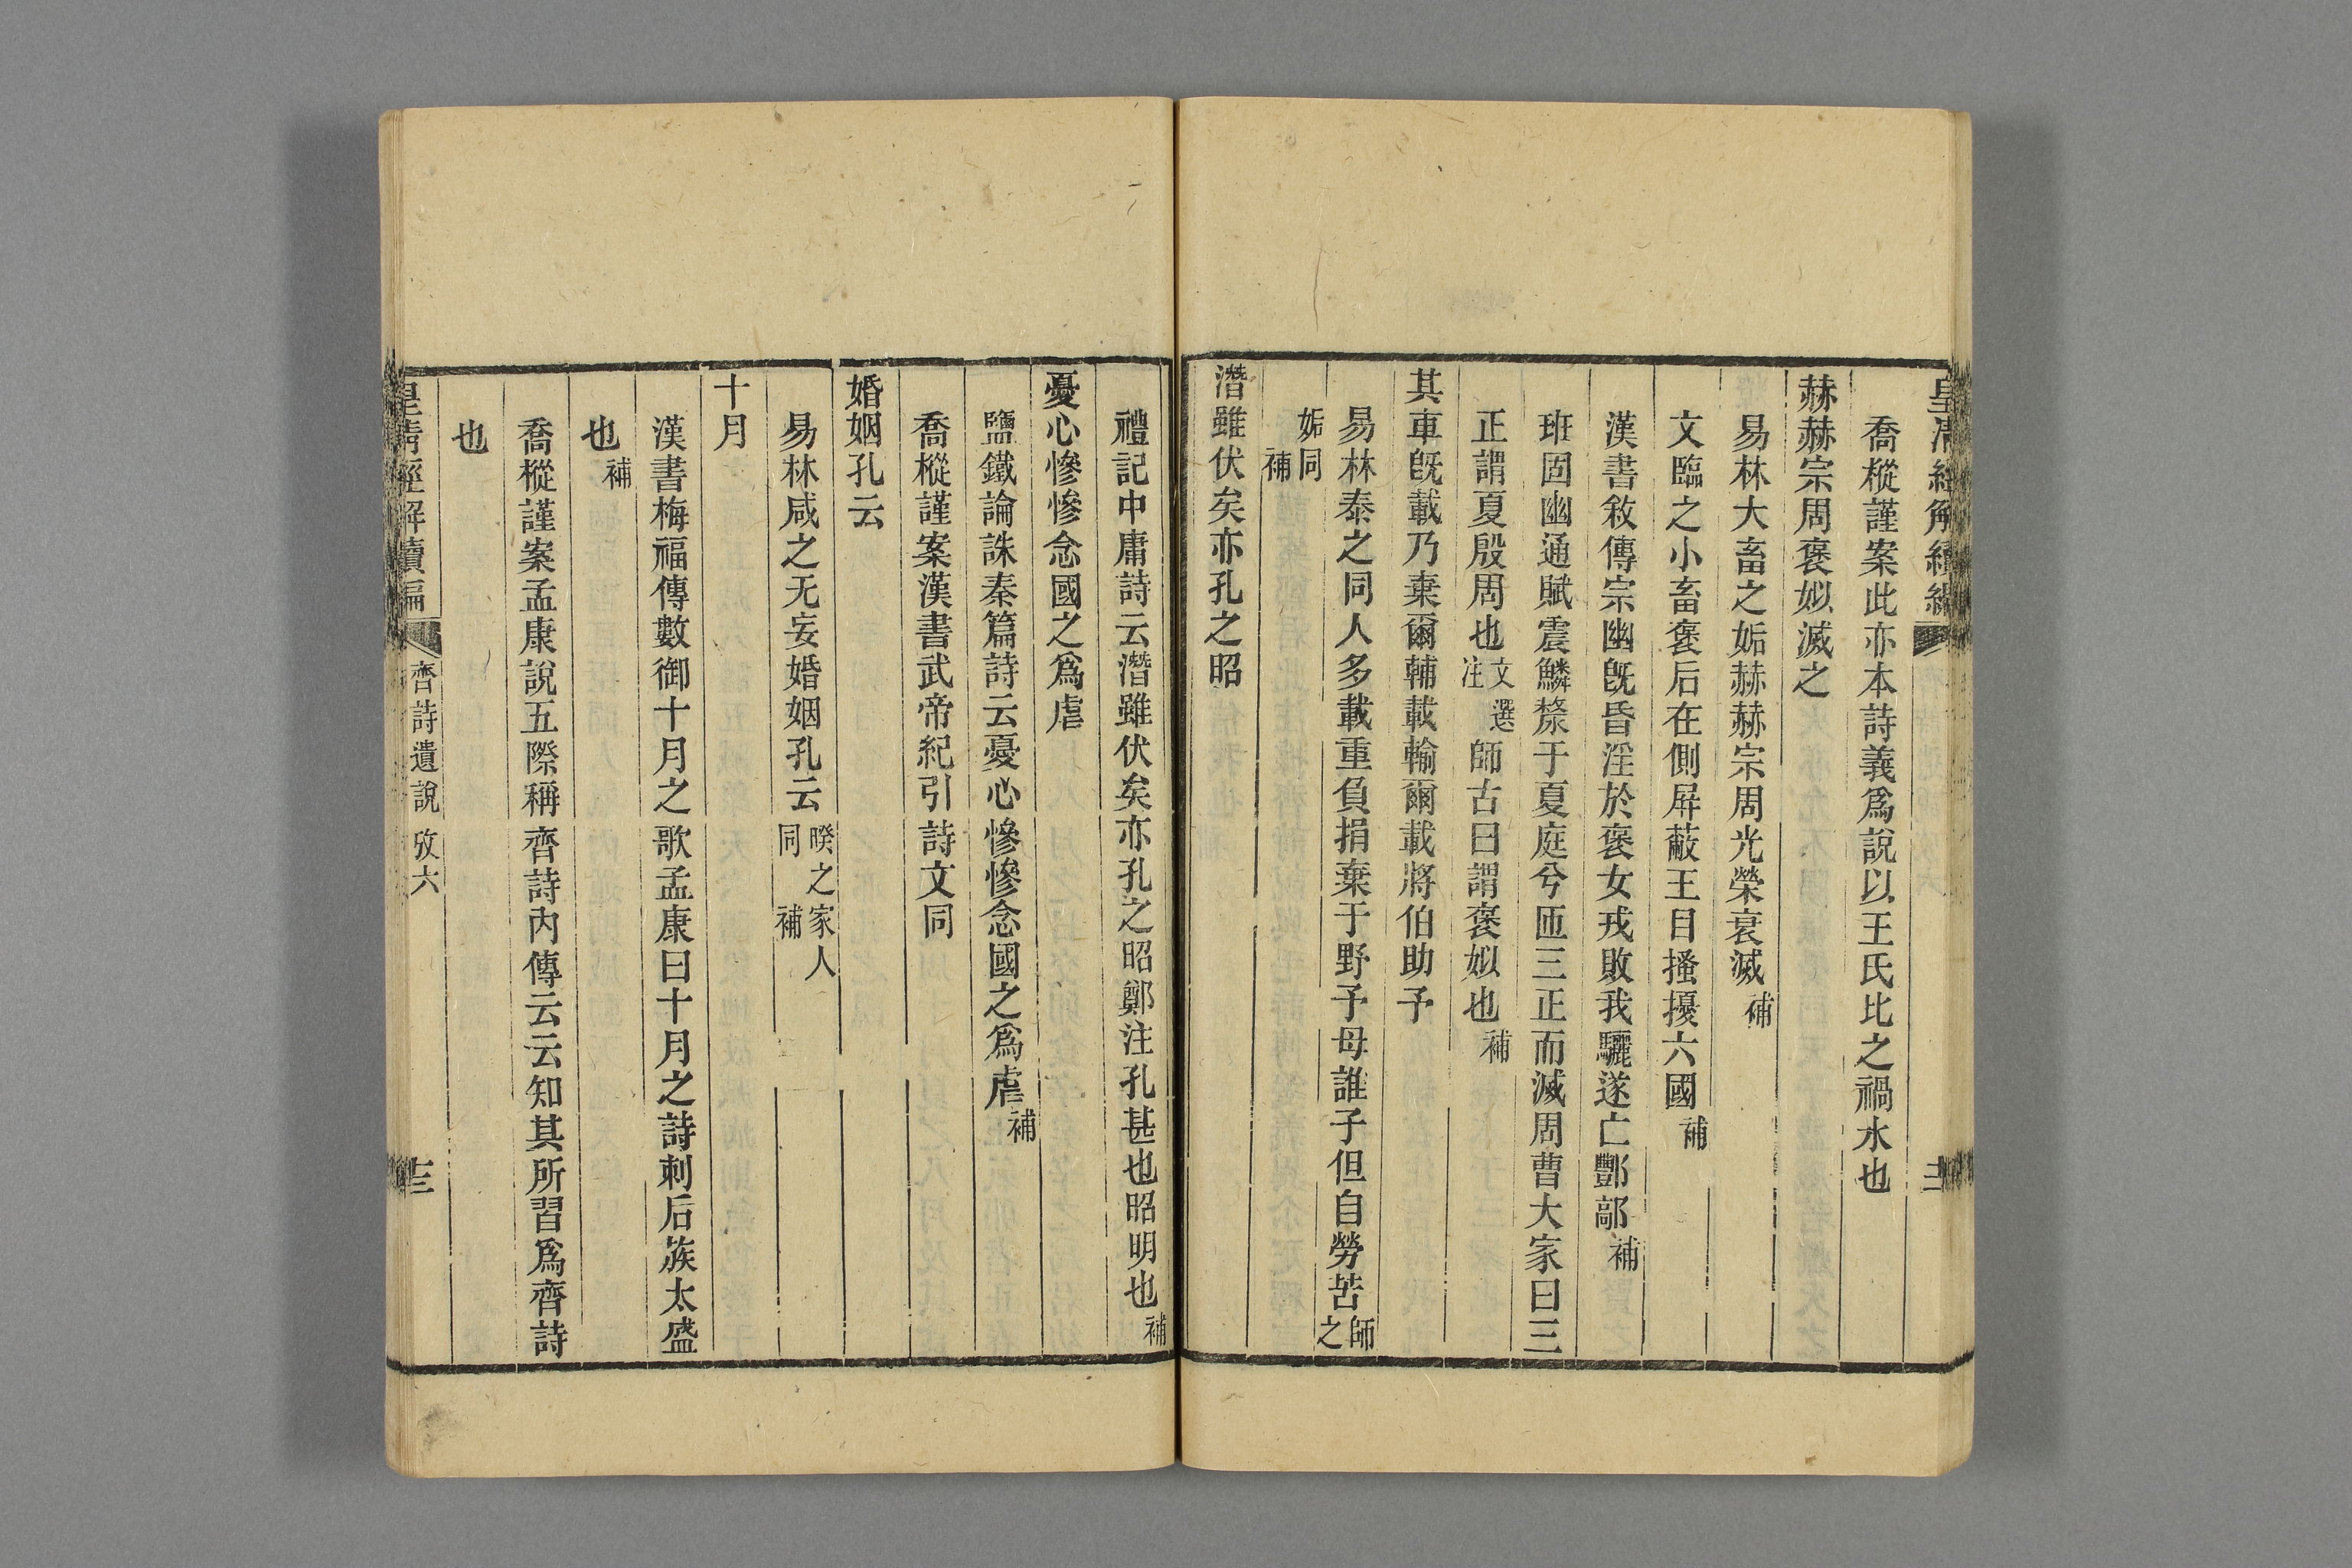 皇清經解續編
喬樅謹案此亦本詩義爲說以王氏比之禍水也
赫赫宗周褒姒滅之
易林大畜之姤赫赫宗周光榮衰滅補
文臨之小畜褒后在側屏蔽王目搔擾六國補
漢書敘傳宗幽旣昏淫於褒女戎敗我驪遂亡酆鄗補
班固幽通賦震鱗漦于夏庭兮匝三正而滅周曹大家曰三
正謂夏殷周也文選注師古曰謂褒姒也補
其車旣載乃棄爾輔載輸爾載將伯助予
易林泰之同人多載重負捐棄于野予母誰子但自勞苦師之
姤同補
潛雖伏矣亦孔之昭
禮記中庸詩云潛雖伏矣亦孔之昭鄭注孔甚也昭明也補
憂心慘慘念國之爲虐
鹽鐵論誅秦篇詩云憂心慘慘念國之爲虐補
喬樅謹案漢書武帝紀引詩文同
婚姻孔云
易林咸之无妄婚姻孔云睽之家人同補
十月
漢書梅福傳數御十月之歌孟康曰十月之詩刺后族太盛
也補
喬樅謹案孟康說五際稱齊詩內傳云云知其所習爲齊詩
也
皇清經解續編 齊詩遺說攷六 十三